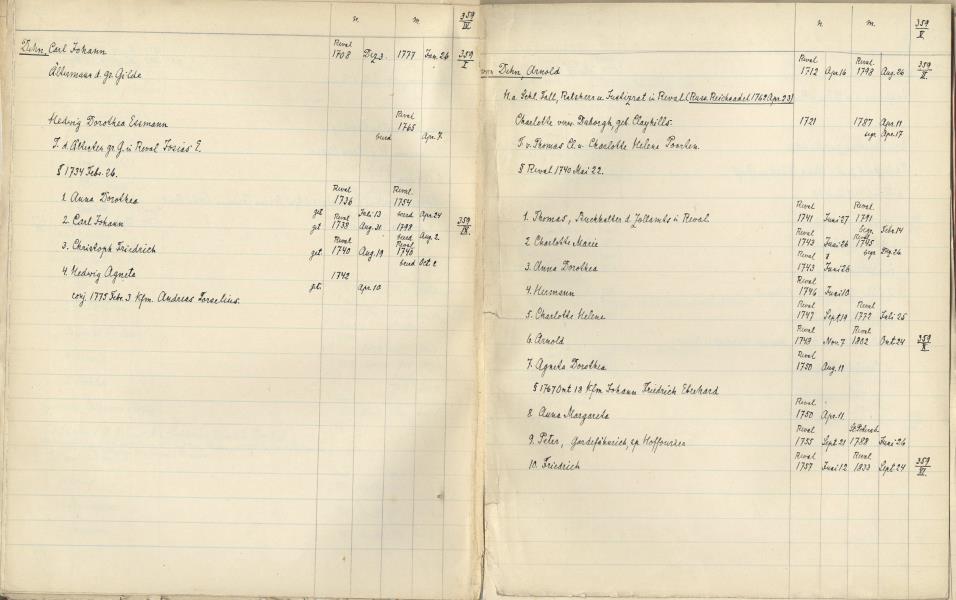 n. m. 359/IV
Reval
Dehn, Carl Johann 1708 Dez 3 1777 Jan. 26 359/I
Ältermann d. gr. Gilde
Reval
Hedwig Dorothea Essmann 1765
beerd Apr. 7.
T. d. Ältesten gr. G. u Reval Josias E.
§ 1734 Febr. 26.
Reval Reval
1. Anna Dorothea 1736 1754
get Juli 13 beerd Apr 24
2. Carl Johann Reval 359/IX
gt 1738 Aug. 31 1798
beerd Aug. 2.
3. Christoph Friedrich Reval Reval
get. 1740 Aug. 19 1740
beerd Oct 2
4. Hedwig Agneta 1742
get. Apr. 10
conj. 1775 Febr. 3 Kfm. Andreas Torselius.
n. m. 359/V
Reval Reval
von Dehn, Arnold 1712 Apr 16 1798 Aug. 26 359/II
H. a Schl. Fall, Ratsherr u. Justizrat in Reval (Russ. Reichsadel 1762 Apr. 23)
Charlotte verw. Duborgh, geb Clayhills. 1721 1787 Apr. 11
Apr. 17
T. v. Thomas Cl. u. Charlotte Helene Poorten.
§ Reval 1740 Mai 22.
Reval Reval
1. Thomas, Buchhalter d. Zollamts in Reval. 1741 Juni 27 1791
Reval begr. Febr 14
2. Charlotte Marie 1743 Juni 26 1745
Reval begr Dez. 26
3. Anna Dorothea 1743 Juni 26
Reval
4. Hermann 1746 Juni 10
Reval Reval
5. Charlotte Helene 1747 Sept 19 1772 Juli 25
Reval Reval
6. Arnold 1749 Nov. 7 1802 Oct 24 359/X
Reval
7. Agneta Dorothea 1750 Aug. 11
§ 1767 Oct 13 Kfm. Johann Friedrich Eberhard
Reval
8. Anna Margareta 1750 Apr. 11.
Reval St. Petersb.
9. Peter, Gardefähnrich, sp. Hoffourier 1755 Sept 21 1788 Juni 26
Reval Reval
10. Friedrich 1757 Juni 12 1833 Sept 24 359/VI.